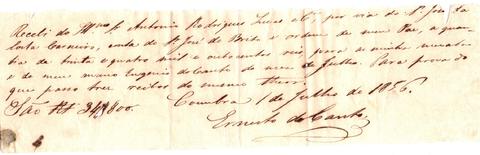 Recebi do Illmo Sr Antonio Rodrigues Lucas e Ca por via do Sr João da
Costa Carneiro, conta de Sr José de Brito e ordem de meu Pae, a quan-
tia de trinta e quatro mil e outocentos reis para as minhas mezadas
e do meu mano Eugenio do Canto do mez de Julho. Para prova do
que passo tres recibos do mesmo theor.
São Rs 34$800. Coimbra 1 de Julho de 1856.
Ernesto do Canto